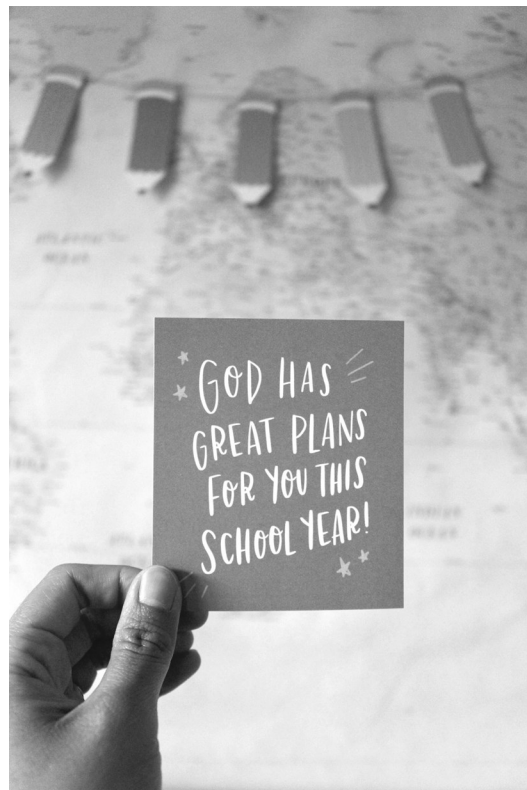 GOD HAS
GREAT PLANS
FOR YOU THIS
SCHOOL YEAR!